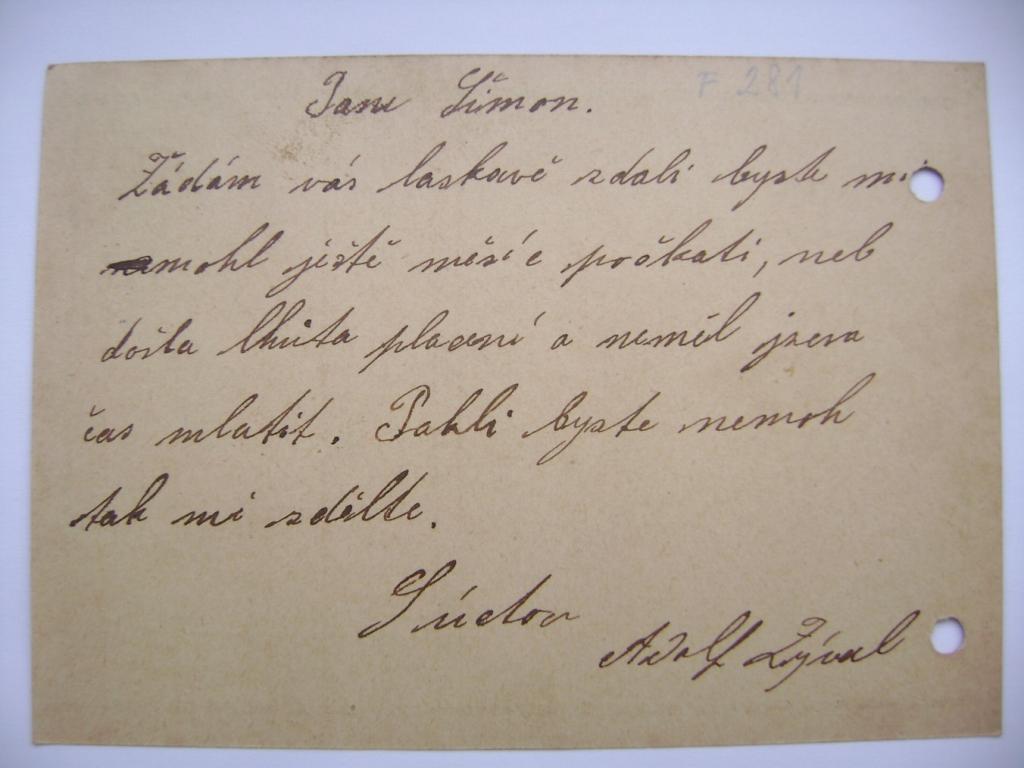 F 281
Pane Šimon.
Žádám vás laskavě zdali byste mi
mohl ještě měsíc počkati, neb
došla lhuta placení a neměl jsem
čas mlatit. Pakli byste nemoh
tak mi zdělte.
S úctou
Adolf Zýval